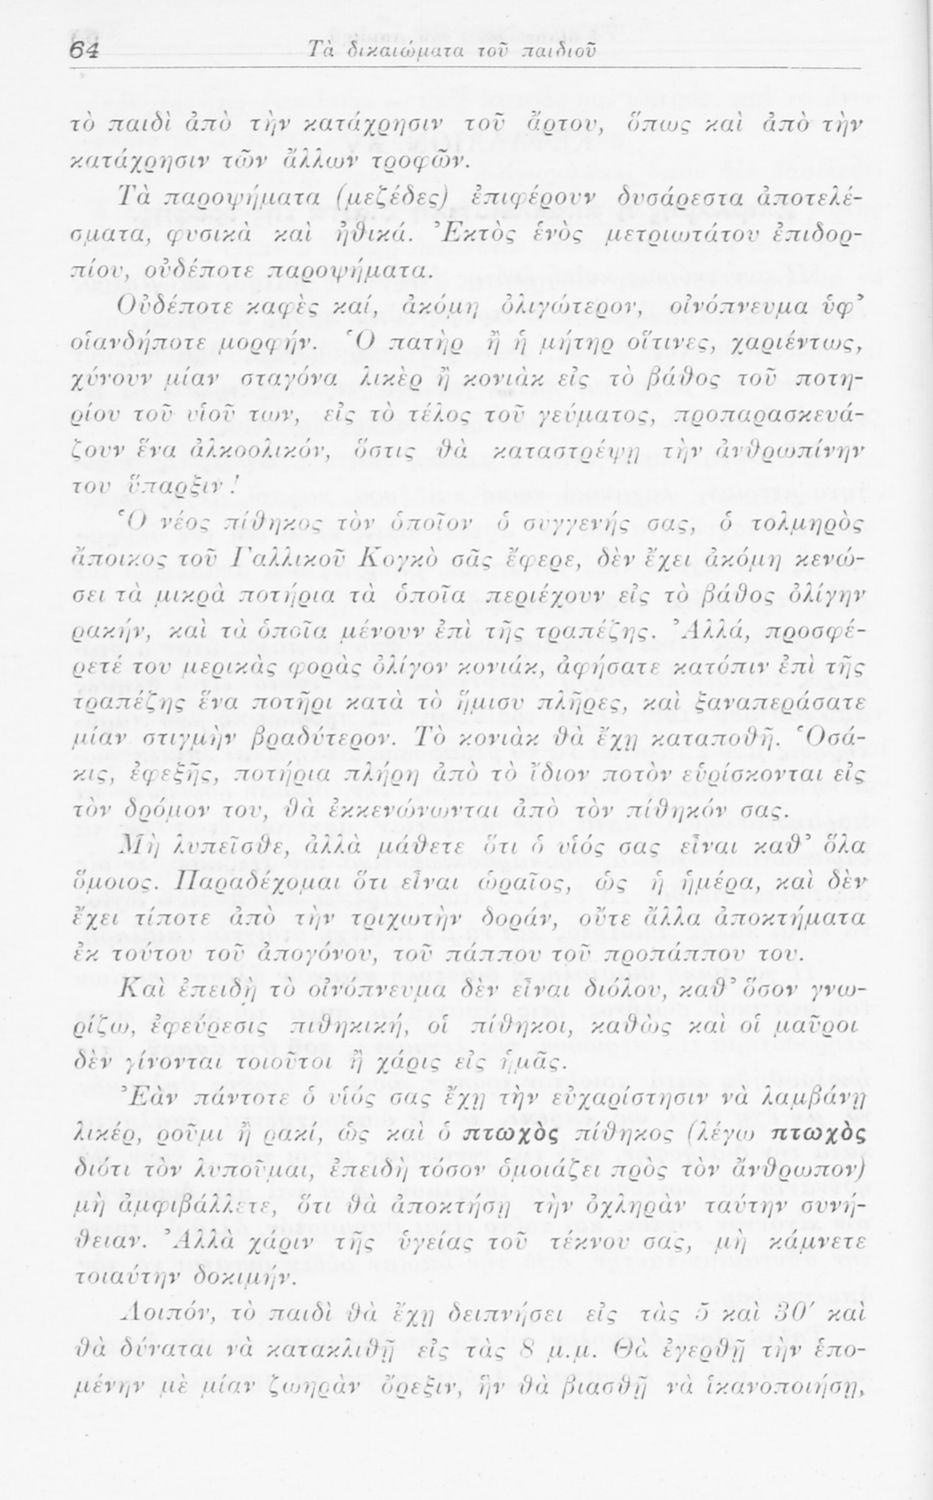 64 Τὰ δικαιώματα τοῦ παιδιοῦ
τὸ παιδὶ ἀπὸ τὴν κατάχρησιν τοῦ ἄρτου, ὅπως καὶ ἀπὸ τὴν
κατάχρησιν τῶν ἄλλων τροφῶν.
Τὰ παροψήματα (μεζέδες) ἐπιφέρουν δυσάρεστα ἀποτελέ-
σματα, φυσικὰ καὶ ἠθικά. Ἐκτὸς ἑνὸς μετριωτάτου ἐπιδορ-
πίου, οὐδέποτε παροψήματα.
Οὐδέποτε καφὲς καί, ἀκόμη ὀλιγώτερον, οἰνόπνευμα ὑφ’
οἱανδήποτε μορφήν. Ὁ πατὴρ ἢ ἡ μήτηρ οἵτινες, χαριέντως,
χύνουν μίαν σταγόνα λικὲρ ἢ κονιὰκ εἰς τὸ βάθος τοῦ ποτη-
ρίου τοῦ υἱοῦ των, εἰς τὸ τέλος τοῦ γεύματος, προπαρασκευά-
ζουν ἕνα ἀλκοολικόν, ὅστις θὰ καταστρέψῃ τὴν ἀνθρωπίνην
του ὕπαρξιν!
Ὁ νέος πίθηκος τὸν ὁποῖον ὁ συγγενής σας, ὁ τολμηρὸς
ἄποικος τοῦ Γαλλικοῦ Κογκὸ σᾶς ἔφερε, δὲν ἔχει ἀκόμη κενώ-
σει τὰ μικρὰ ποτήρια τὰ ὁποῖα περιέχουν εἰς τὸ βάθος ὀλίγην
ρακήν, καὶ τὰ ὁποῖα μένουν ἐπὶ τῆς τραπέζης. Ἀλλά, προσφέ-
ρετέ του μερικὰς φορὰς ὀλίγον κονιάκ, ἀφήσατε κατόπιν ἐπὶ τῆς
τραπέζης ἕνα ποτῆρι κατὰ τὸ ἥμισυ πλῆρες, καὶ ξαναπεράσατε
μίαν στιγμὴν βραδύτερον. Τὸ κονιὰκ θὰ ἔχῃ καταποθῆ. Ὁσά-
κις, ἐφεξῆς, ποτήρια πλήρη ἀπὸ τὸ ἴδιον ποτὸν εὑρίσκονται εἰς
τὸν δρόμον του, θὰ ἐκκενώνωνται ἀπὸ τὸν πίθηκόν σας.
Μὴ λυπεῖσθε, ἀλλὰ μάθετε ὅτι ὁ υἱός σας εἶναι καθ’ ὅλα
ὅμοιος. Παραδέχομαι ὅτι εἶναι ὡραῖος, ὡς ἡ ἡμέρα, καὶ δὲν
ἔχει τίποτε ἀπὸ τὴν τριχωτὴν δοράν, οὔτε ἄλλα ἀποκτήματα
ἐκ τούτου τοῦ ἀπογόνου, τοῦ πάππου τοῦ προπάππου του.
Καὶ ἐπειδὴ τὸ οἰνόπνευμα δὲν εἶναι διόλου, καθ’ ὅσον γνω-
ρίζω, ἐφεύρεσις πιθηκική, οἱ πίθηκοι, καθὼς καὶ οἱ μαῦροι
δὲν γίνονται τοιοῦτοι ἢ χάρις εἰς ἡμᾶς.
Ἐὰν πάντοτε ὁ υἱός σας ἔχῃ τὴν εὐχαρίστησιν νὰ λαμβάνῃ
λικέρ, ροῦμι ἢ ρακί, ὡς καὶ ὁ πτωχὸς πίθηκος (λέγω πτωχὸς
διότι τὸν λυποῦμαι, ἐπειδὴ τόσον ὁμοιάζει πρὸς τὸν ἄνθρωπον)
μὴ ἀμφιβάλλετε, ὅτι θὰ ἀποκτήσῃ τὴν ὀχληρὰν ταύτην συνή-
θειαν. Ἀλλὰ χάριν τῆς ὑγείας τοῦ τέκνου σας, μὴ κάμνετε
τοιαύτην δοκιμήν.
Λοιπόν, τὸ παιδὶ θὰ ἔχῃ δειπνήσει εἰς τὰς 5 καὶ 30′ καὶ
θὰ δύναται νὰ κατακλιθῇ εἰς τὰς 8 μ.μ. Θὰ ἐγερθῇ τὴν ἑπο-
μένην μὲ μίαν ζωηρὰν ὄρεξιν, ἣν θὰ βιασθῇ νὰ ἱκανοποιήσῃ,